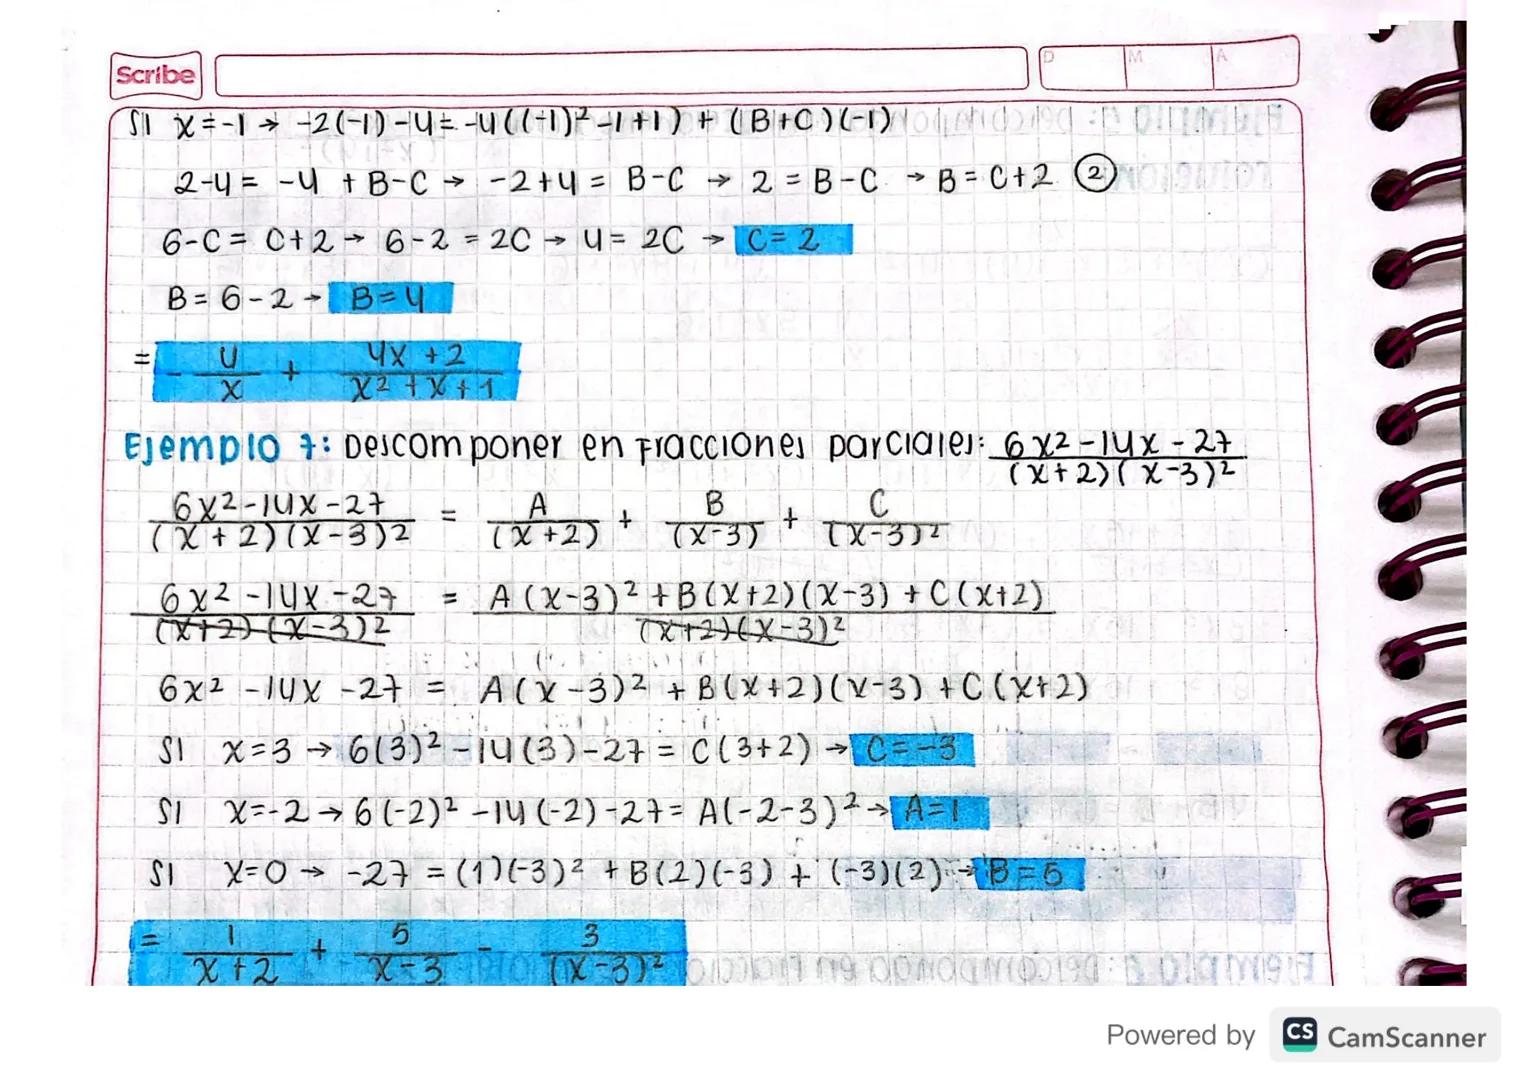 Scribe
D M A
SI x=-1 → -2(-1)-4=-4((-1)²-1+1)+(B+C)(-1)
2-4= -4 +B-C → -2+4 = B-C → 2 = B-C → B=C+2 ②
6-C= C+2 → 6-2 = 2C → 4= 2C → C=2
B= 6-2 → B=4
= - 4/x + 4x+2/x²+x+1
Ejemplo 7: Descomponer en Fracciones parciales: 6x²-14x-27/(x+2)(x-3)²
6x²-14x-27/(x+2)(x-3)² = A/(x+2) + B/(x-3) + C/(x-3)²
6x²-14x-27/(x+2)(x-3)² = A(x-3)²+B(x+2)(x-3)+C(x+2)/(x+2)(x-3)²
6x²-14x-27 = A(x-3)²+B(x+2)(x-3)+C(x+2)
SI x=3 → 6(3)²-14(3)-27 = C(3+2) → C=-3
SI x=-2 → 6(-2)²-14(-2)-27= A(-2-3)² → A=1
SI x=0 → -27 = (1)(-3)²+B(2)(-3)+(-3)(2) → B=5
= 1/x+2 + 5/x-3 - 3/(x-3)²
Powered by CS CamScanner